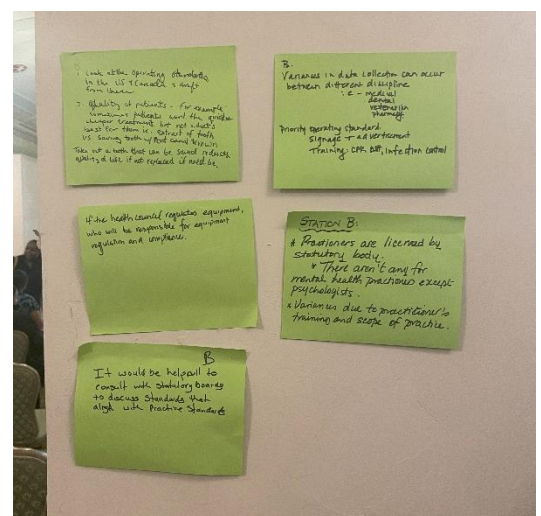 B
Look at the operating standards
in the US & Canada & draft
from there
Quality of patients - For example
sometimes patients want the quicker
cheaper treatment but not what's
best for them ie. extract of tooth
vs. saving tooth w/ Root canal
Take out a tooth that can be saved reduces
quality of life if not replaced if need be.
B.
Variances in data collection can occur
between different discipline
i.e - medical
dental
veterinarian
pharmacy
Priority operating standard:
Signage + advertisement
Training: CPR, infection control
If the health council regulates equipment,
who will be responsible for equipment
regulation and compliance.
STATION B:
* Practioners are licensed by
statutory body.
* There aren't any for
mental health practioner except
psychologists.
* Variances due to practitioner's
training and scope of practice.
B
It would be helpful to
consult with Statutory boards
to discuss Standards that
align with Practice Standards